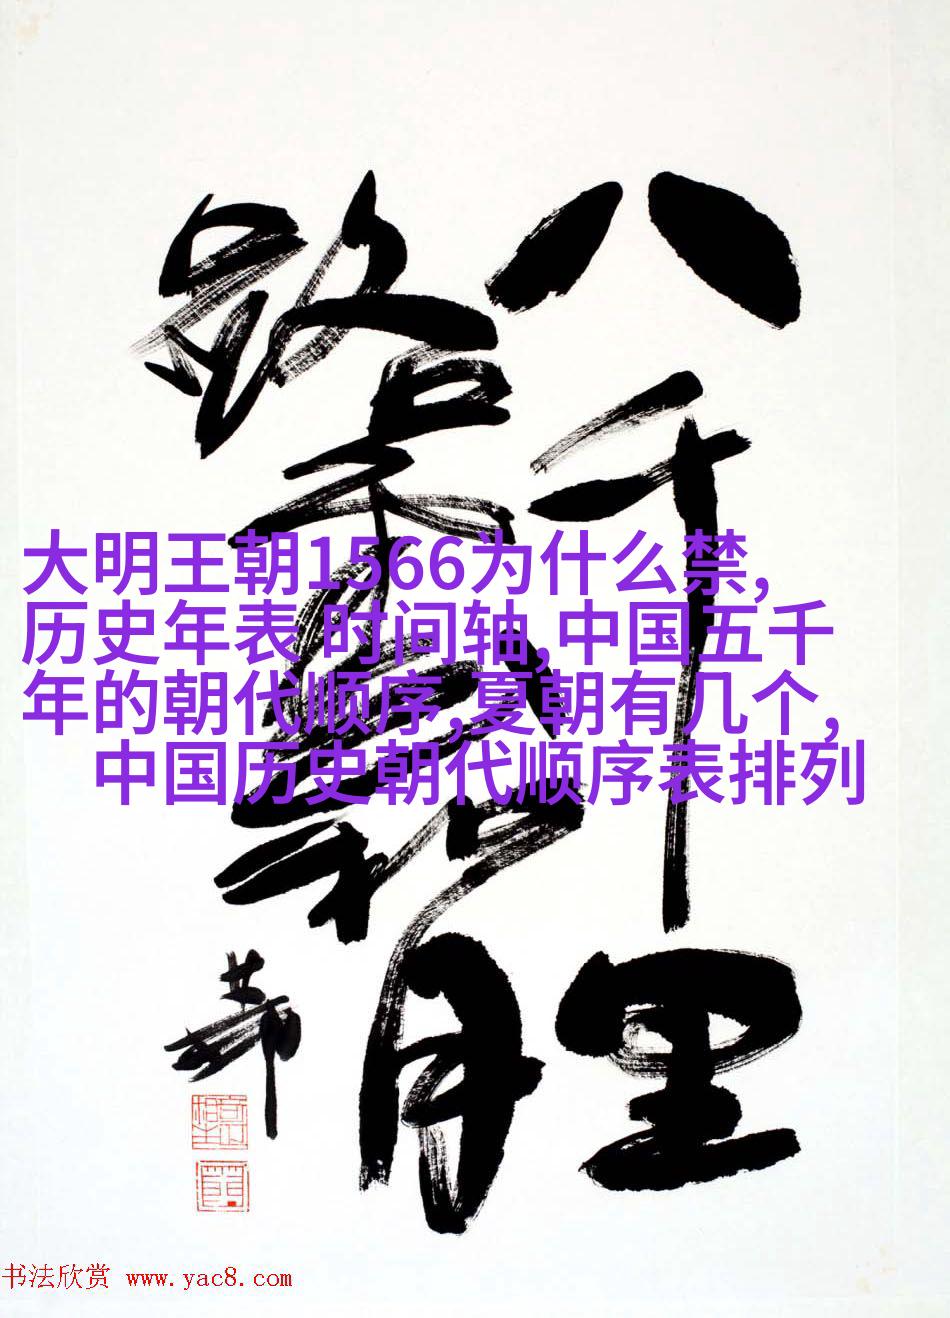 八千里
路云和月
大明王朝1566为什么禁,
历史年表 时间轴,中国五千
年的朝代顺序,夏朝有几个,
中国历史朝代顺序表排列
书法欣赏 www.yac8.com